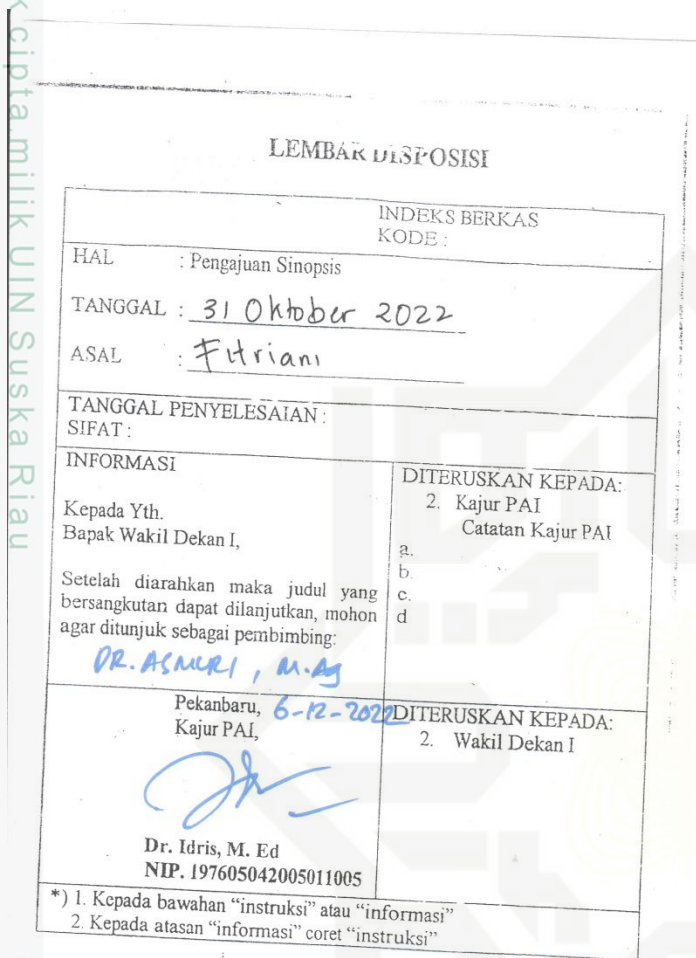 k cipta milik UIN Suska Riau
LEMBAR DISPOSISI
INDEKS BERKAS
KODE :
HAL : Pengajuan Sinopsis
TANGGAL : 31 Oktober 2022
ASAL : Fitriani
TANGGAL PENYELESAIAN :
SIFAT :
INFORMASI
Kepada Yth.
Bapak Wakil Dekan I,
Setelah diarahkan maka judul yang
bersangkutan dapat dilanjutkan, mohon
agar ditunjuk sebagai pembimbing:
DR. ASMURI, M.Ag
DITERUSKAN KEPADA:
2. Kajur PAI
Catatan Kajur PAI
a.
b.
c.
d
Pekanbaru, 6-12-2022
Kajur PAI,
Dr. Idris, M. Ed
NIP. 197605042005011005
DITERUSKAN KEPADA:
2. Wakil Dekan I
*) 1. Kepada bawahan "instruksi" atau "informasi"
2. Kepada atasan "informasi" coret "instruksi"